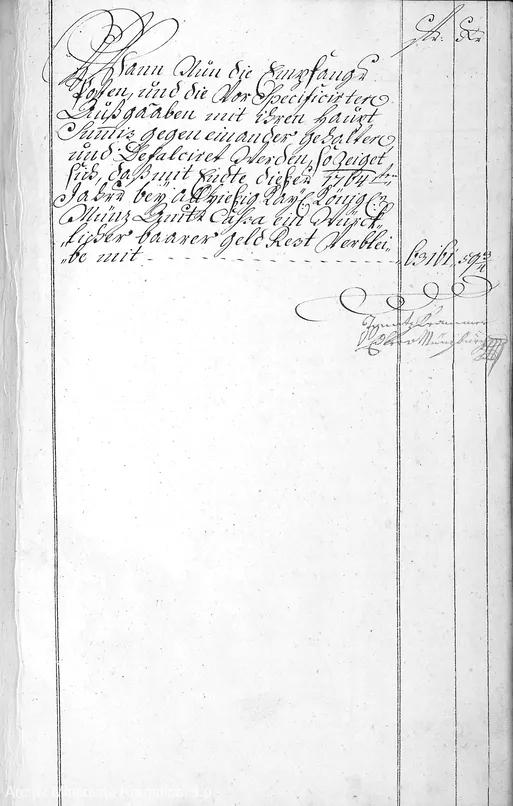 fl. Kr
Wann Nun die Empfangs
Posten, und die Vor Specificirten
Außgaaben mit ihren Haupt
Summis gegen einander gehalten
und Defalciret Werden, So Zeiget
sich, daß mit Endte dießes 1764ten
Jahrs bey allhießig Kay: König:n
Münz Ambts Cassa ein Würck-
licher baarer Geld Rest Verblei-
be mit 63161 59 3/4